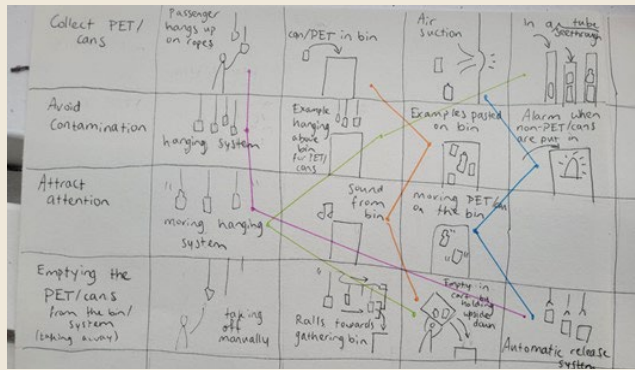 Collect PET/
cans
Passenger
hangs up
on ropes
can/PET in bin
Air
suction
In a tube
seethrough
Avoid
Contamination
hanging system
Example
hanging
above
bin
for PET/
cans
Examples pasted
on bin
Alarm when
non-PET/cans
are put in
Attract
attention
moving hanging
system
Sound
from
bin
moving PET/can
on the bin
Emptying the
PET/cans
from the bin/
system
(taking away)
taking
off
manually
Ralls towards
gathering bin
Empty in
cart by
holding
upside
down
Automatic release
system